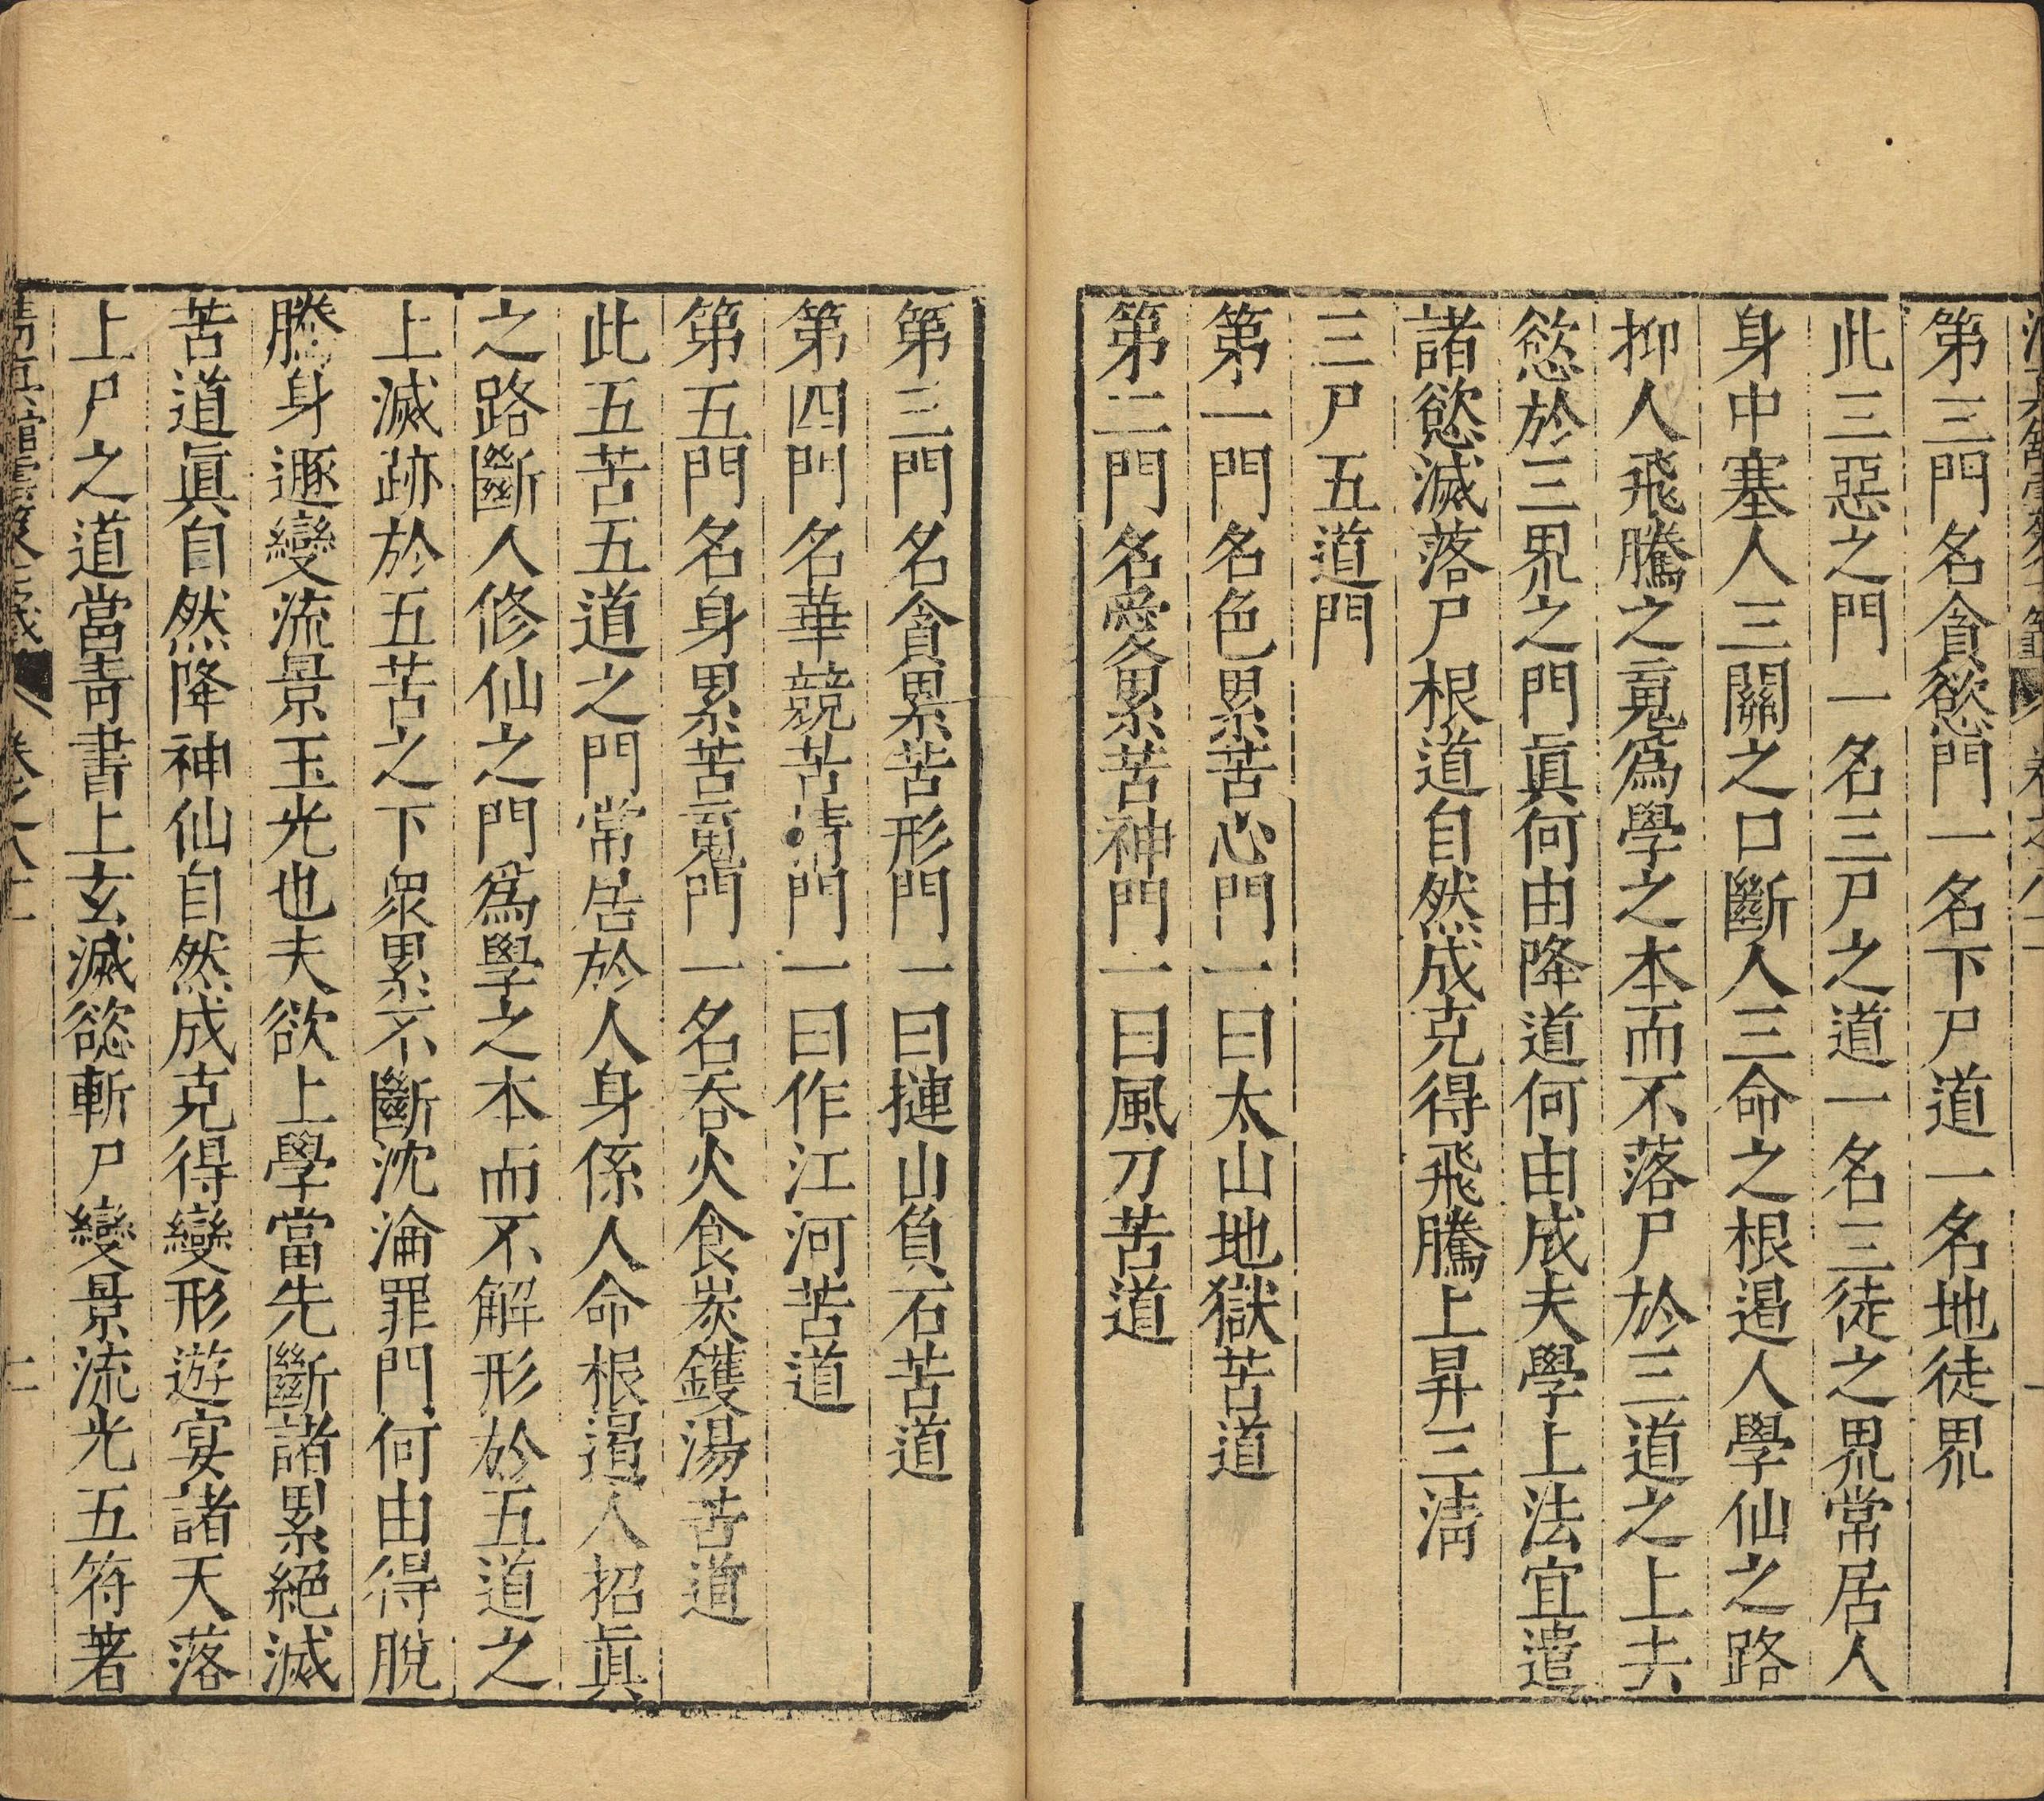 第三門名貪慾門一名下尸道一名地徒界
此三惡之門一名三尸之道一名三徒之界常居人
身中塞人三關之口斷人三命之根遏人學仙之路
抑人飛騰之䰟爲學之本而不落尸於三道之上去
慾於三界之門眞何由降道何由成夫學上法宜遣
諸慾滅落尸根道自然成克得飛騰上昇三淸
三尸五道門
第一門名色累苦心門一曰太山地獄苦道
第二門名愛累苦神門一曰風刀苦道
第三門名貪累苦形門一曰摙山負石苦道
第四門名華競苦情門一曰作江河苦道
第五門名身累苦䰟門一名吞火食炭鑊湯苦道
此五苦五道之門常居於人身係人命根遏人招眞
之路斷人修仙之門爲學之本而不解形於五道之
上滅跡於五苦之下衆累不斷沈淪罪門何由得脫
騰身遯變流景玉光也夫欲上學當先斷諸累絕滅
苦道眞自然降神仙自然成克得變形遊宴諸天落
上尸之道當靑書上玄滅慾斬尸變景流光五符著